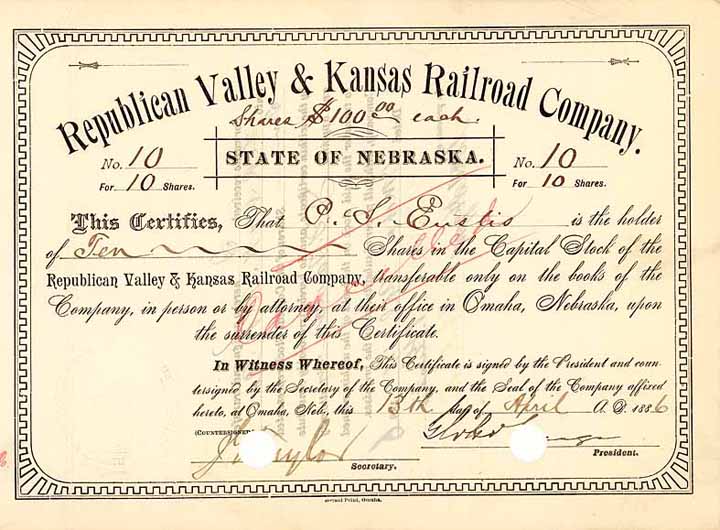 Republican Valley & Kansas Railroad Company.
Shares $100.00 each.
No. 10
STATE OF NEBRASKA.
No. 10
For 10 Shares.
For 10 Shares.
This Certifies, That P. S. Eustis is the holder
of Ten Shares in the Capital Stock of the
Republican Valley & Kansas Railroad Company, transferable only on the books of the
Company, in person or by attorney, at their office in Omaha, Nebraska, upon
the surrender of this Certificate.
Cancelled
In Witness Whereof, This Certificate is signed by the President and coun-
tersigned by the Secretary of the Company, and the Seal of the Company affixed
hereto, at Omaha, Neb., this 13th day of April A. D. 1886
(COUNTERSIGNED)
Secretary.
President.
Print, Omaha.